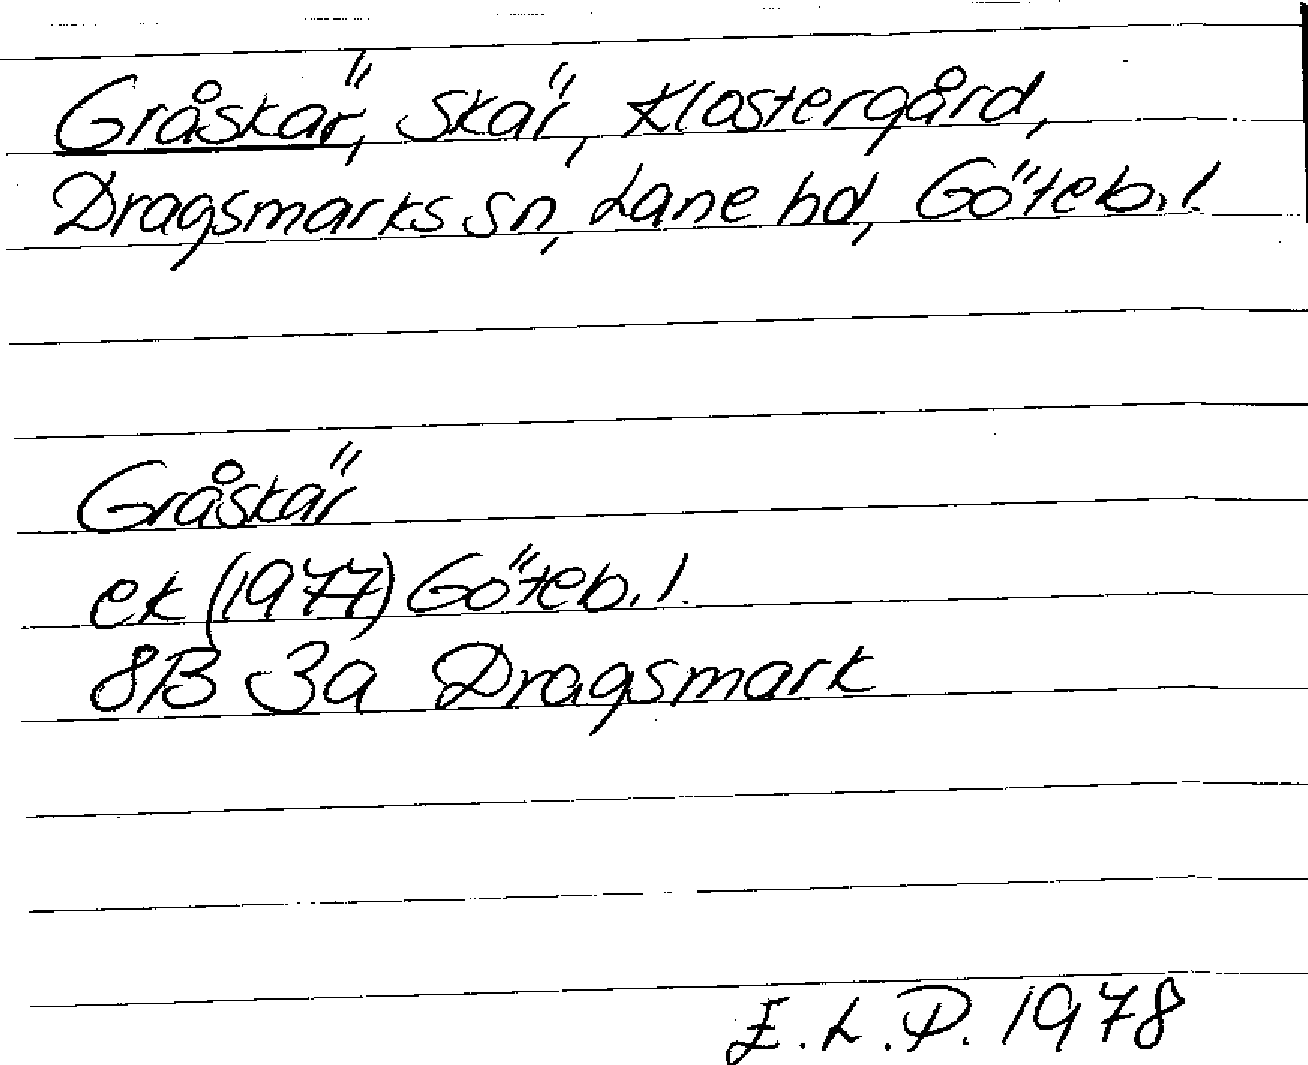 Gråskär, Skär, Klostergård,
Dragsmarks sn, Lane hd, Göteb. l.
Gråskär
ek (1977) Göteb. l.
8B 3a Dragsmark
E. L. P. 1978